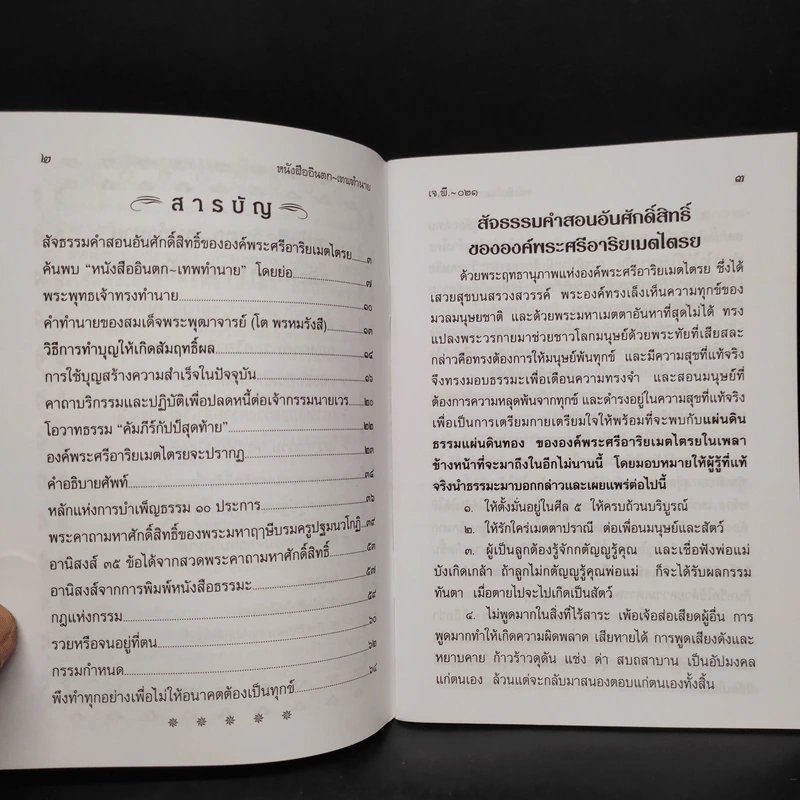 ๒
หนังสืออินตก~เทพทำนาย
สารบัญ
สัจธรรมคำสอนอันศักดิ์สิทธิ์ขององค์พระศรีอาริยเมตไตรย........๓
ค้นพบ “หนังสืออินตก~เทพทำนาย” โดยย่อ........๗
พระพุทธเจ้าทรงทำนาย........๑๐
คำทำนายของสมเด็จพระพุฒาจารย์ (โต พรหมรังสี)........๑๓
วิธีการทำบุญให้เกิดสัมฤทธิ์ผล........๑๔
การใช้บุญสร้างความสำเร็จในปัจจุบัน........๑๖
คาถาบริกรรมและปฏิบัติเพื่อปลดหนี้ต่อเจ้ากรรมนายเวร........๒๐
โอวาทธรรม “คัมภีร์กัปป์สุดท้าย”........๒๒
องค์พระศรีอาริยเมตไตรยจะปรากฏ........๒๓
คำอธิบายศัพท์........๓๔
หลักแห่งการบำเพ็ญธรรม ๑๐ ประการ........๓๖
พระคาถามหาศักดิ์สิทธิ์ของพระมหาฤาษีบรมครูปฐมนวโกฏิ........๓๙
อานิสงส์ ๓๕ ข้อได้จากสวดพระคาถามหาศักดิ์สิทธิ์........๕๓
อานิสงส์จากการพิมพ์หนังสือธรรมะ........๕๗
กฎแห่งกรรม........๕๙
รวยหรือจนอยู่ที่ตน........๖๐
กรรมกำหนด........๖๒
พึงทำทุกอย่างเพื่อไม่ให้อนาคตต้องเป็นทุกข์........๖๔
เจ.พี.~๐๒๑
๓
สัจธรรมคำสอนอันศักดิ์สิทธิ์
ขององค์พระศรีอาริยเมตไตรย
ด้วยพระฤทธานุภาพแห่งองค์พระศรีอาริยเมตไตรย ซึ่งได้
เสวยสุขบนสรวงสวรรค์ พระองค์ทรงเล็งเห็นความทุกข์ของ
มวลมนุษยชาติ และด้วยพระมหาเมตตาอันหาที่สุดไม่ได้ ทรง
แปลงพระวรกายมาช่วยชาวโลกมนุษย์ด้วยพระทัยที่เสียสละ
กล่าวคือทรงต้องการให้มนุษย์พ้นทุกข์ และมีความสุขที่แท้จริง
จึงทรงมอบธรรมะเพื่อเตือนความทรงจำ และสอนมนุษย์ที่
ต้องการความหลุดพ้นจากทุกข์ และดำรงอยู่ในความสุขที่แท้จริง
เพื่อเป็นการเตรียมกายเตรียมใจให้พร้อมที่จะพบกับแผ่นดิน
ธรรมแผ่นดินทอง ขององค์พระศรีอาริยเมตไตรยในเพลา
ข้างหน้าที่จะมาถึงในอีกไม่นานนี้ โดยมอบหมายให้ผู้รู้ที่แท้
จริงนำธรรมะมาบอกกล่าวและเผยแพร่ต่อไปนี้
๑. ให้ตั้งมั่นอยู่ในศีล ๕ ให้ครบถ้วนบริบูรณ์
๒. ให้รักใคร่เมตตาปราณี ต่อเพื่อนมนุษย์และสัตว์
๓. ผู้เป็นลูกต้องรู้จักกตัญญูรู้คุณ และเชื่อฟังพ่อแม่
บังเกิดเกล้า ถ้าลูกไม่กตัญญูรู้คุณพ่อแม่ ก็จะได้รับผลกรรม
ทันตา เมื่อตายไปจะไปเกิดเป็นสัตว์
๔. ไม่พูดมากในสิ่งที่ไร้สาระ เพ้อเจ้อส่อเสียดผู้อื่น การ
พูดมากทำให้เกิดความผิดพลาด เสียหายได้ การพูดเสียงดังและ
หยาบคาย ก้าวร้าวดุดัน แช่ง ด่า สบถสาบาน เป็นอัปมงคล
แก่ตนเอง ล้วนแต่จะกลับมาสนองตอบแก่ตนเองทั้งสิ้น